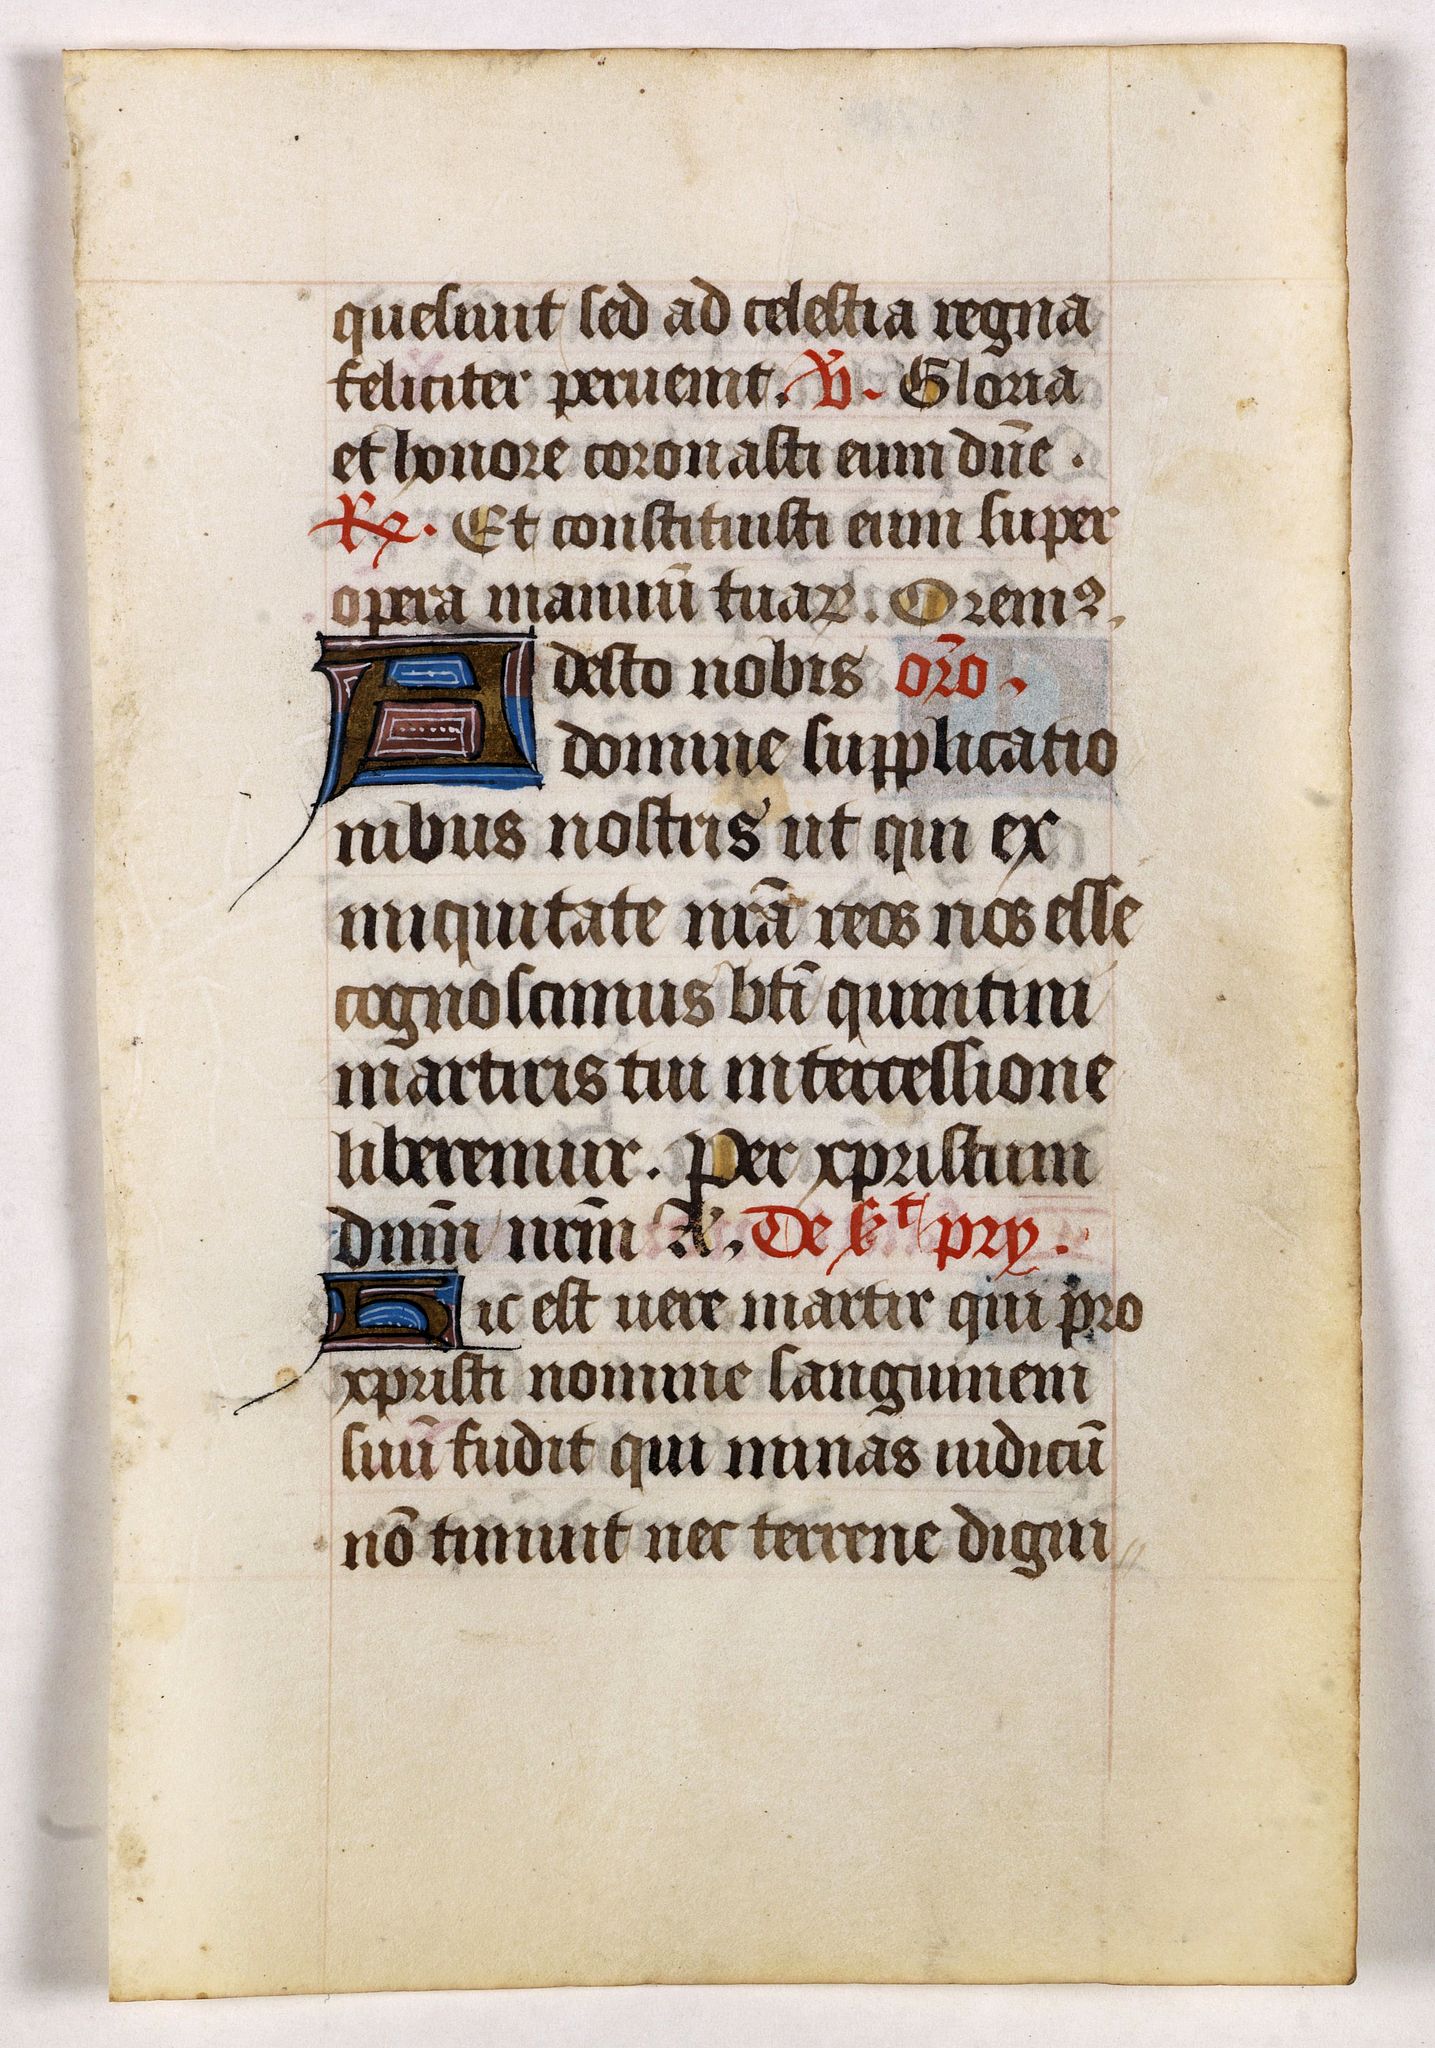 quesiuit sed ad celestia regna
feliciter peruenit. V. Gloria
et honore coronasti eum dñe.
R. Et constituisti eum super
opera manuū tuaꝝ. Oremꝰ.
Adesto nobis oro.
domine supplicatio
nibus nostris ut qui ex
iniquitate nrā reos nos esse
cognoscimus bti quintini
martiris tui intercessione
liberemur. Per xpristum
dnm nrm &c. De
Hic est uere martir qui pro
xpristi nomine sanguinem
suū fudit qui minas iudicū
nō timuit nec terrene digni